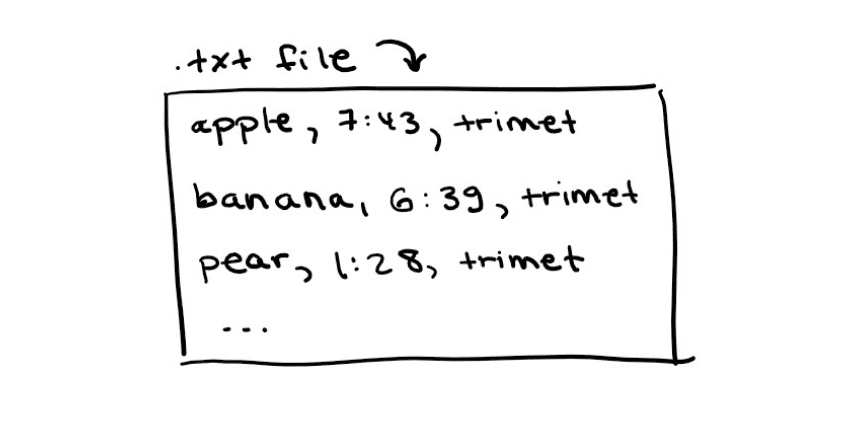 .txt file
apple, 7:43, trimet
banana, 6:39, trimet
pear, 1:28, trimet
...